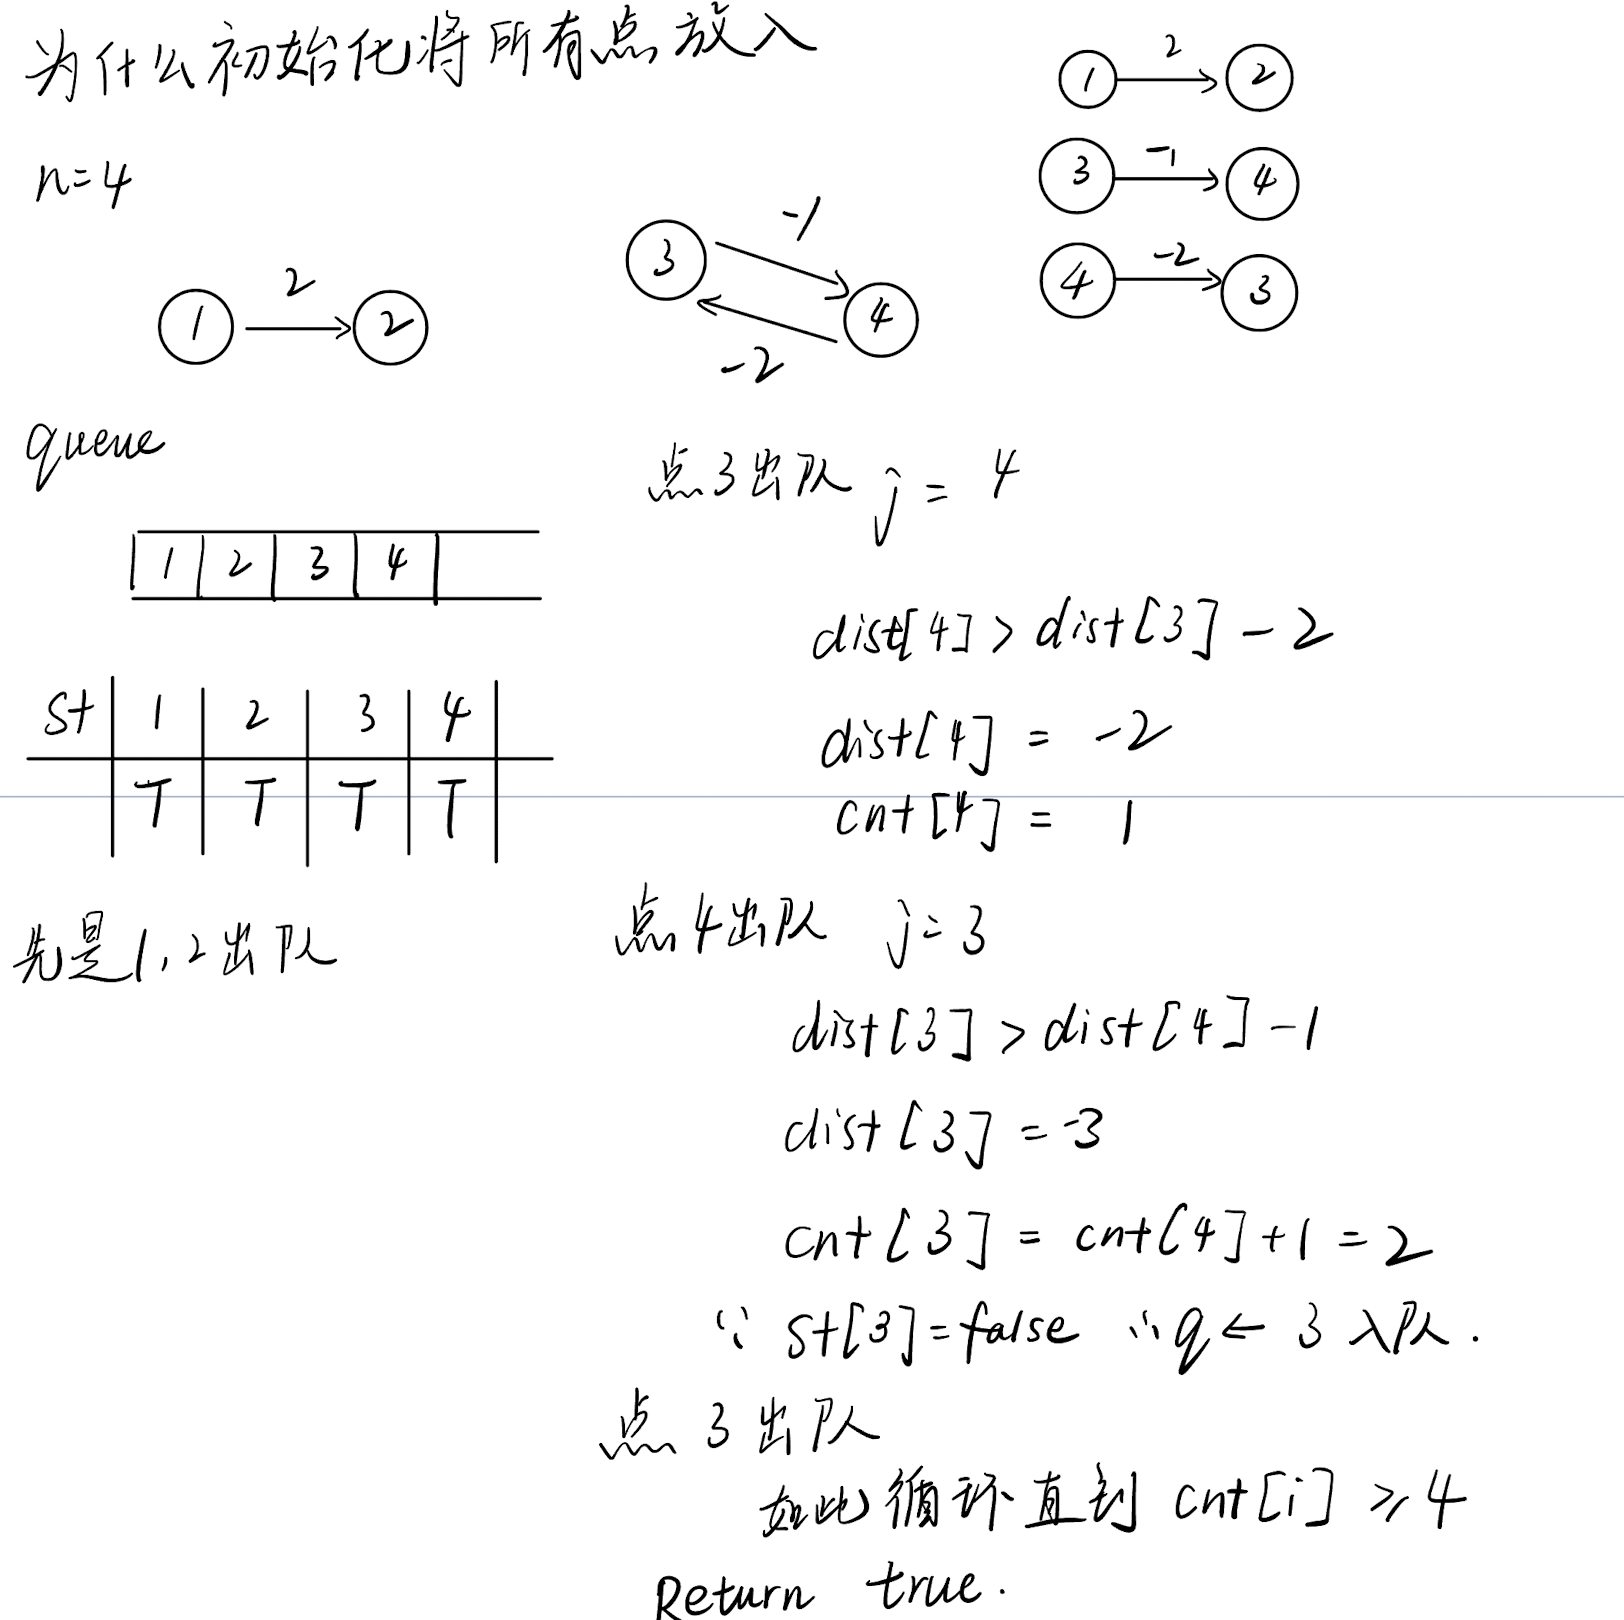 为什么初始化将所有点放入
n=4
1 2 2
3 -1 4
-2
1 2 2
3 -1 4
4 -2 3
queue
1 2 3 4
st 1 2 3 4
T T T T
先是1,2出队
点3出队 j = 4
dist[4] > dist[3] - 2
dist[4] = -2
cnt[4] = 1
点4出队 j = 3
dist[3] > dist[4] - 1
dist[3] = -3
cnt[3] = cnt[4] + 1 = 2
∵ st[3] = false ∴ q ← 3 入队.
点 3 出队
如此循环直到 cnt[i] ≥ 4
Return true.